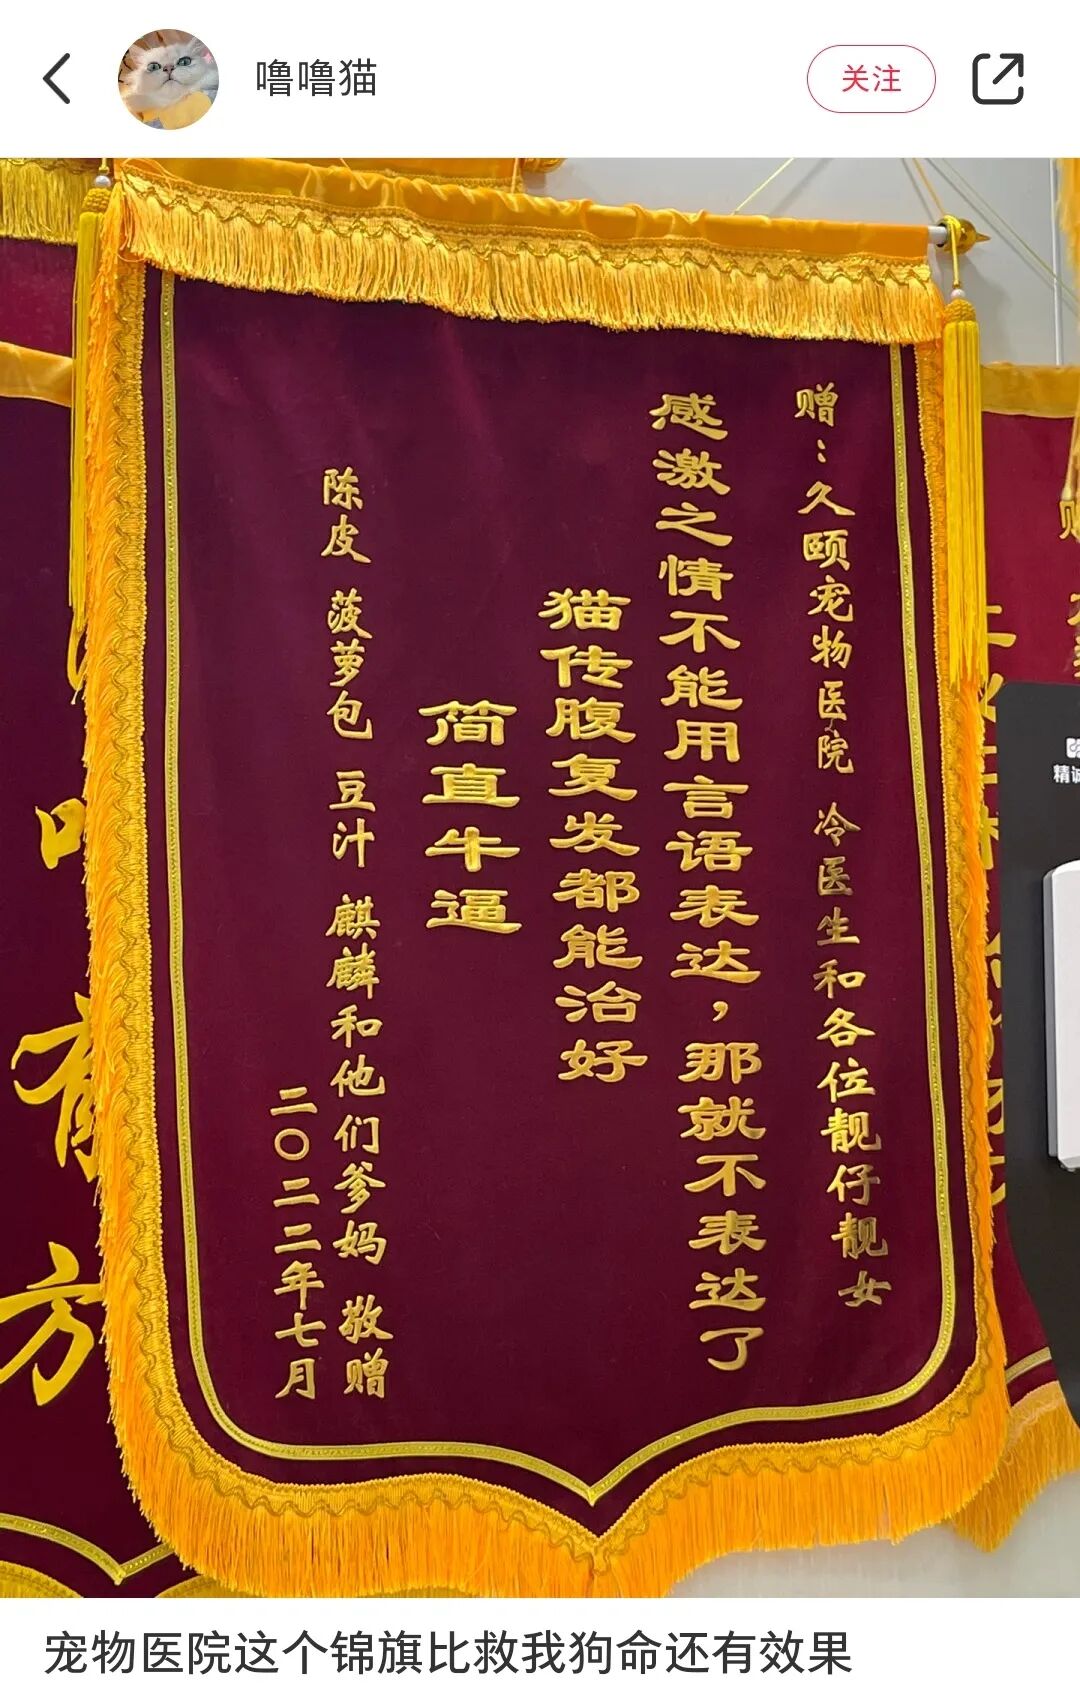 噜噜猫
关注
赠：久颐宠物医院 冷医生和各位靓仔靓女
感激之情不能用言语表达，那就不表达了
猫传腹复发都能治好
简直牛逼
陈皮 菠萝包 豆汁 麒麟和他们爹妈 敬赠
二〇二二年七月
方
精诚
宠物医院这个锦旗比救我狗命还有效果